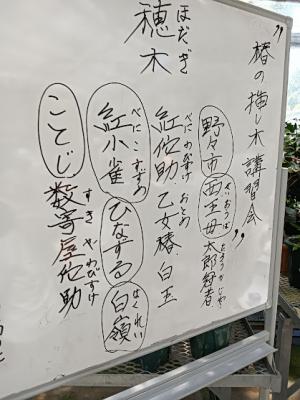 ”椿の挿し木 講習会”
ほだぎ
穂木
野々市 西王母 太郎冠者
せいおうぼ
たろうかじゃ
紅侘助・乙女椿・白玉
べにわびすけ
おとめ
紅小雀 ひなづる 白嶺
べにこすずめ
はくれい
こてじ 数寄屋侘助
すきやわびすけ